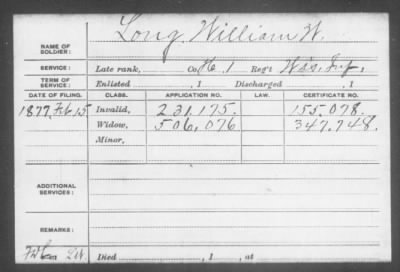 NAME OF SOLDIER: Long, William W.
SERVICE: Late rank, Co. H, 1 Reg't Wis. Inf.
TERM OF SERVICE: Enlisted , 1 Discharged , 1
DATE OF FILING. CLASS. APPLICATION NO. LAW. CERTIFICATE NO.
1877, Feb 15 Invalid, 231.175. 155.078.
Widow, 506,076 347.748.
Minor,
ADDITIONAL SERVICES:
REMARKS:
Died , 1 , at